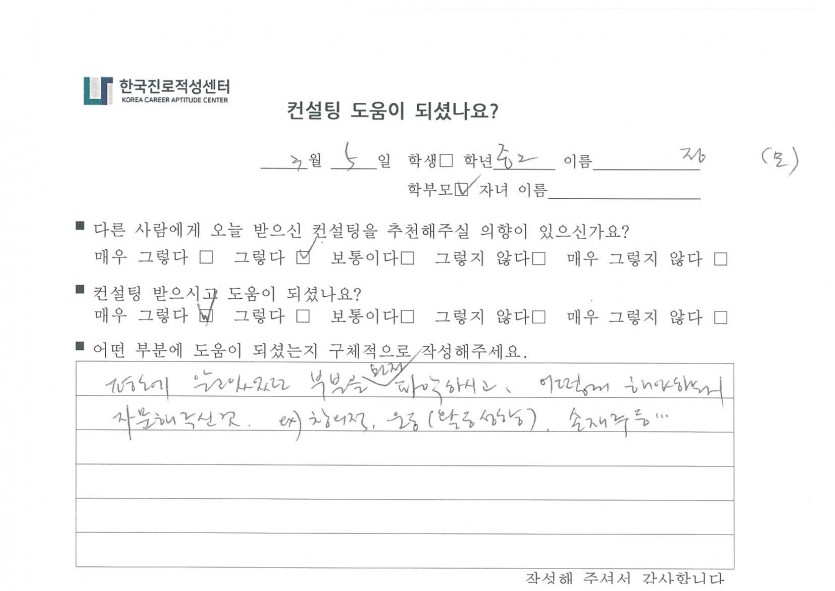 한국진로적성센터
KOREA CAREER APTITUDE CENTER
컨설팅 도움이 되셨나요?
3월 5일 학생□ 학년 중2 이름 장 (모)
학부모☑ 자녀 이름
■ 다른 사람에게 오늘 받으신 컨설팅을 추천해주실 의향이 있으신가요?
매우 그렇다 □ 그렇다 ☑ 보통이다□ 그렇지 않다□ 매우 그렇지 않다 □
■ 컨설팅 받으시고 도움이 되셨나요?
매우 그렇다 ☑ 그렇다 □ 보통이다□ 그렇지 않다□ 매우 그렇지 않다 □
■ 어떤 부분에 도움이 되셨는지 구체적으로 작성해주세요.
평소에 알고있었던 부분을 먼저 파악하시고, 어떻게 해야할지
자문해주신것. ex) 창의적, 운동(활동성향), 손재주등...
작성해 주셔서 감사합니다